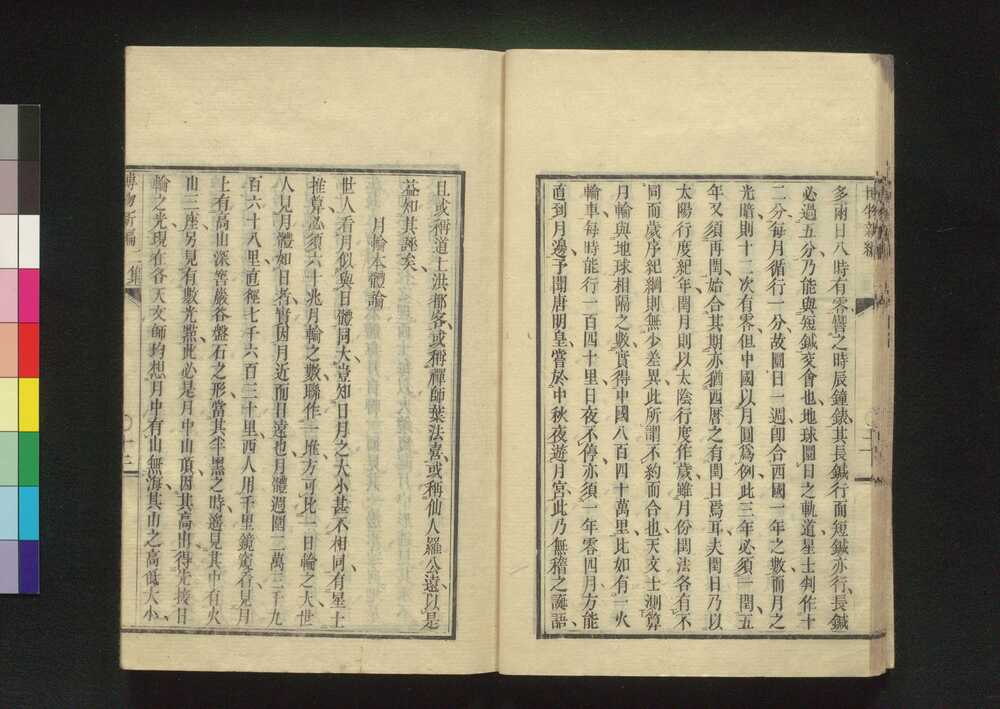 博物新編
多兩日八時有零譬之時辰鐘錶其長鍼行而短鍼亦行、長鍼
必過五分乃能與短鍼交會也、地球圜日之軌道星士判作十
二分、每月循行一分、故圜日一週卽合西國一年之數、而月之
光暗則十二次有零、但中國以月圓爲例、此三年必須一閏、五
年又須再閏、始合其期、亦猶西曆之有閏日焉耳、夫閏日乃以
太陽行度紀年、閏月則以太陰行度作歲、雖月份閏法各有不
同、而歲序紀綱則無少差異、此所謂不約而合也、天文士測算
月輪與地球相隔之數、實得中國八百四十萬里、比如有一火
輪車、每時能行一百四十里、日夜不停、亦須一年零四月、方能
直到月邊、予聞唐明皇嘗於中秋夜遊月宮、此乃無稽之誕語、
且或稱道士洪都客、或稱禪師葉法善、或稱仙人羅公遠、以是
益知其誣矣、
月輪本體論
世人看月似與日體同大、豈知日月之大小甚不相同、有星士
推算、必須六十兆月輪之數、聯作一堆、方可比一日輪之大、世
人見月體如日者、皆因月近而日遠也、月體週圍二萬三千九
百六十八里、直徑七千六百三十里、西人用千里鏡窺看、見月
上有高山深窖巖谷盤石之形、當其半黑之時、邊見其中有火
山三座、另見有數光點、此必是月中山頂、因其高出得先接日
輪之光、現在各天文師均想月中有山無海、其山之高低大小、
博物新編 二集
十三